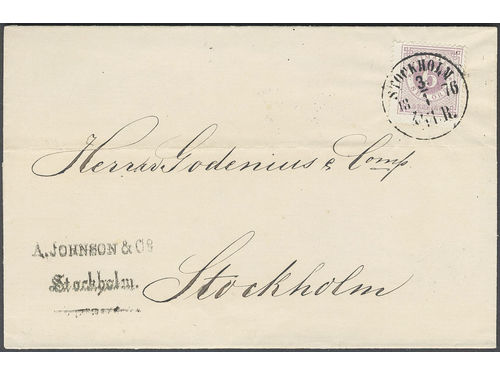 STOCKHOLM
3
18 1 76
Herrar Godenius & Comp
A. JOHNSON & Co
Stockholm.
Stockholm